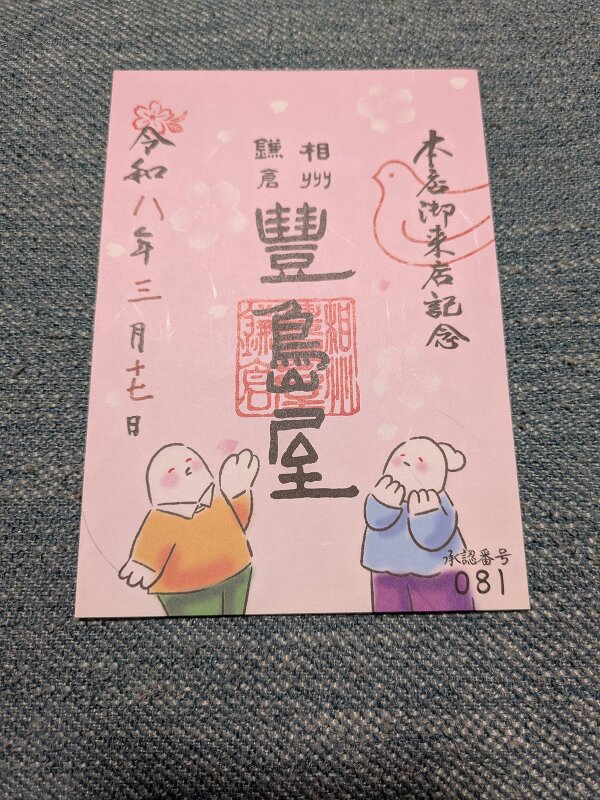 本店御来店記念
相州
鎌倉
豐島屋
相州
鎌倉
令和八年三月十七日
承認番号
081